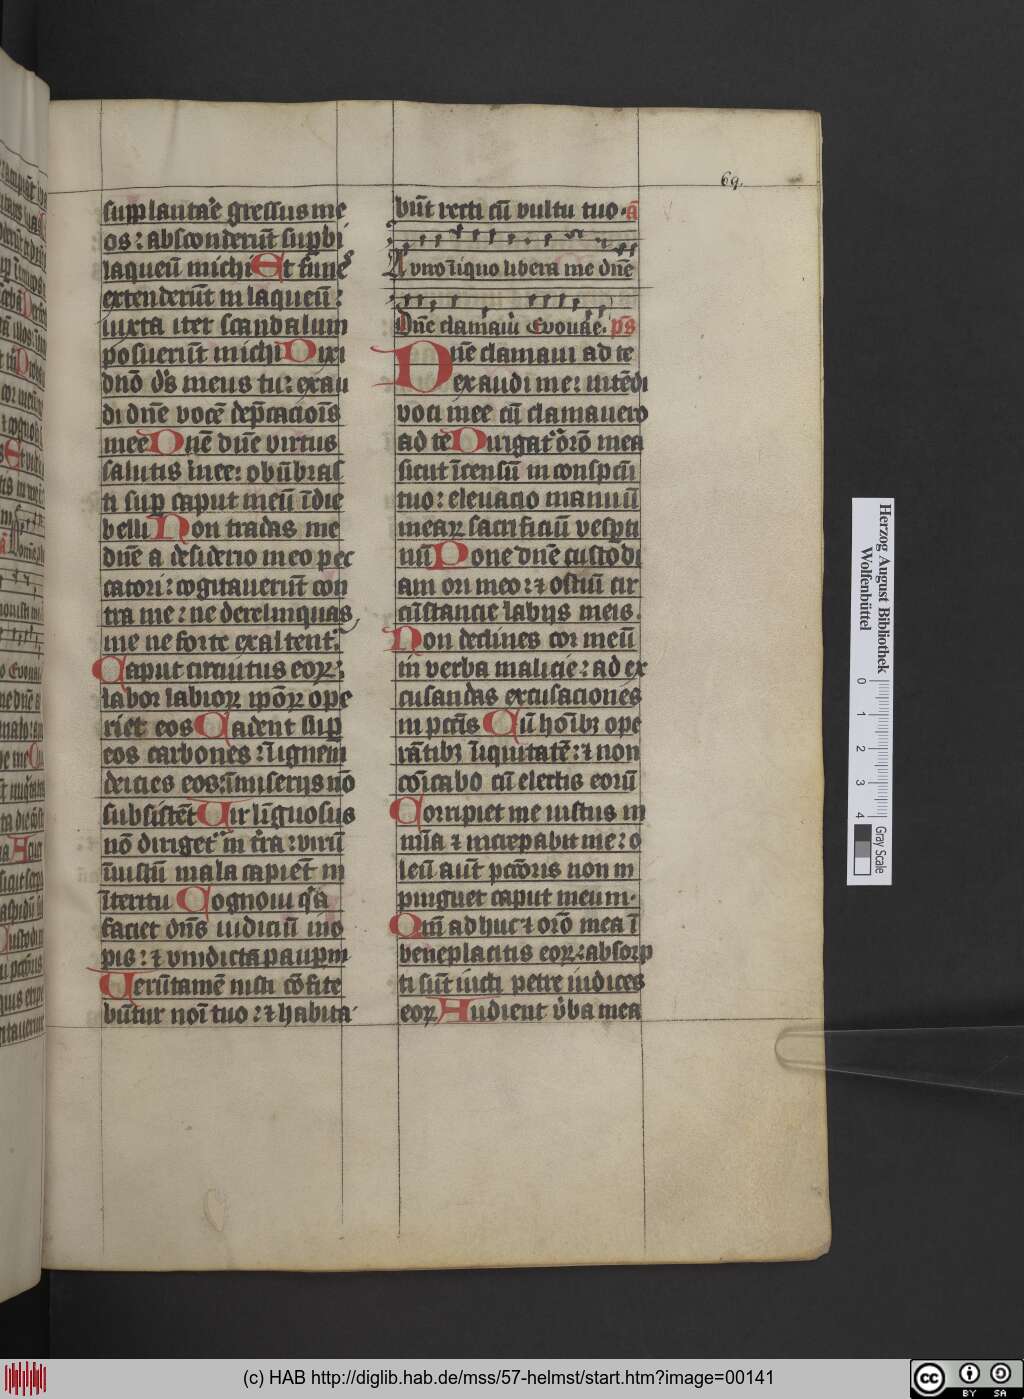 69.
supplanta͛e gressus me
os : absconderūt supbi
laqueū michi Et funes
extenderūt in laqueū :
iuxta iter scandalum
posuerūt michi Dixi
dnō ds̄ meus tu : exau
di dnē vocē dep̄cacioīs
mee Dnē dnē virtus
salutis mee : obūbras
ti sup caput meū ī die
belli Non tradas me
dnē a desiderio meo pec
catori : cogitauerūt con
tra me : ne derelinquas
me ne forte exaltent͛
Caput circuitus eoꝝ :
labor labioꝝ ipōꝝ ope
riet eos Cadent sup
eos carbones : ī ignem
deicies eos : ī miserijs nō
subsistēt Vir līguosus
nō diriget͛ in tr̄a : virū
īiustū mala capiēt in
īteritu Cognoui q̄a
faciet dn̄s iudiciū ino
pis : ⁊ vindictā paupm
Verūtamē iusti cōfite
būtur noī tuo : ⁊ habita
būt recti cū vultu tuo . ā
A viro īiquo libera me dnē
Dnē clamaui Evouae . ps̄
Dnē clamaui ad te
exaudi me : intēdi
voci mee cū clamauero
ad te Dirigat͛ orō mea
sicut īcensū in conspcū
tuo : eleuacio manuū
meaꝝ sacrificiū vesptī
nū Pone dnē custodi
am ori meo : ⁊ ostiū cir
cūstancie labijs meis .
Non declines cor meū
in verba malicie : ad ex
cusandas excusaciones
in pctīs Cū hoībꝫ ope
rātibꝫ īiquitatē : ⁊ non
cōicabo cū electis eorū
Corripiet me iustus in
mīa ⁊ increpabit me : o
leū aūt pctōris non in
pinguet caput meum .
Qm̄ adhuc ⁊ orō mea ī
beneplacitis eoꝝ : absorp
ti sūt iūcti petre iudices
eoꝝ Audient v͛ba mea
Herzog August Bibliothek
Wolfenbüttel
0 1 2 3 4
Gray Scale
(c) HAB http://diglib.hab.de/mss/57-helmst/start.htm?image=00141
cc BY SA